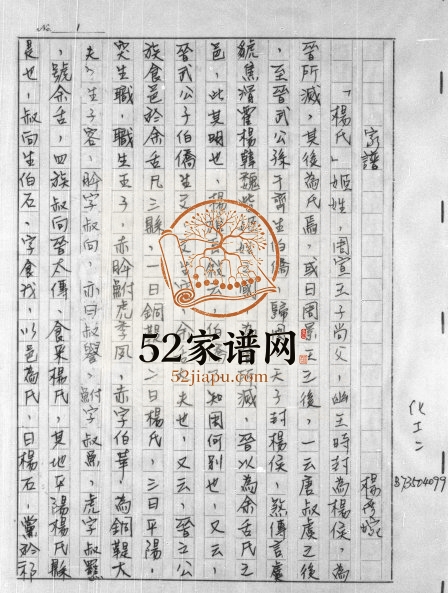 No. 1
化工二
B73504099
楊
家譜
「楊氏」姬姓,周宣王子尚父,幽王時封為楊侯,為
晉所滅,其後為氏焉,或曰周景王之後,一云唐叔虞之後
,至晉武公孫于齊生伯僑,歸周,天子封楊侯,然傳言虞
虢焦滑霍楊韓魏皆姬姓之國,為晉所滅,晉以為余舌氏之
邑,此其明也,楊 自敘云,伯 不知周何別也,又云,
晉武公子伯僑生文,文生突, 夫也,又云,晉之公
族食邑於余舌凡三縣,一曰銅鞮,二曰楊氏,三曰平陽,
突生職,職生五子,赤肸鮒虎季夙,赤字伯華,為銅鞮大
夫,生子容,肸字叔向,亦曰叔譽,鮒字叔魚,虎字叔羆
,號余舌,四族叔向晉太傅,食采楊氏,其地平陽楊氏縣
是也,叔向生伯石,字食我,以邑為氏,曰楊石,黨於祁
52家谱网
52jiapu.com